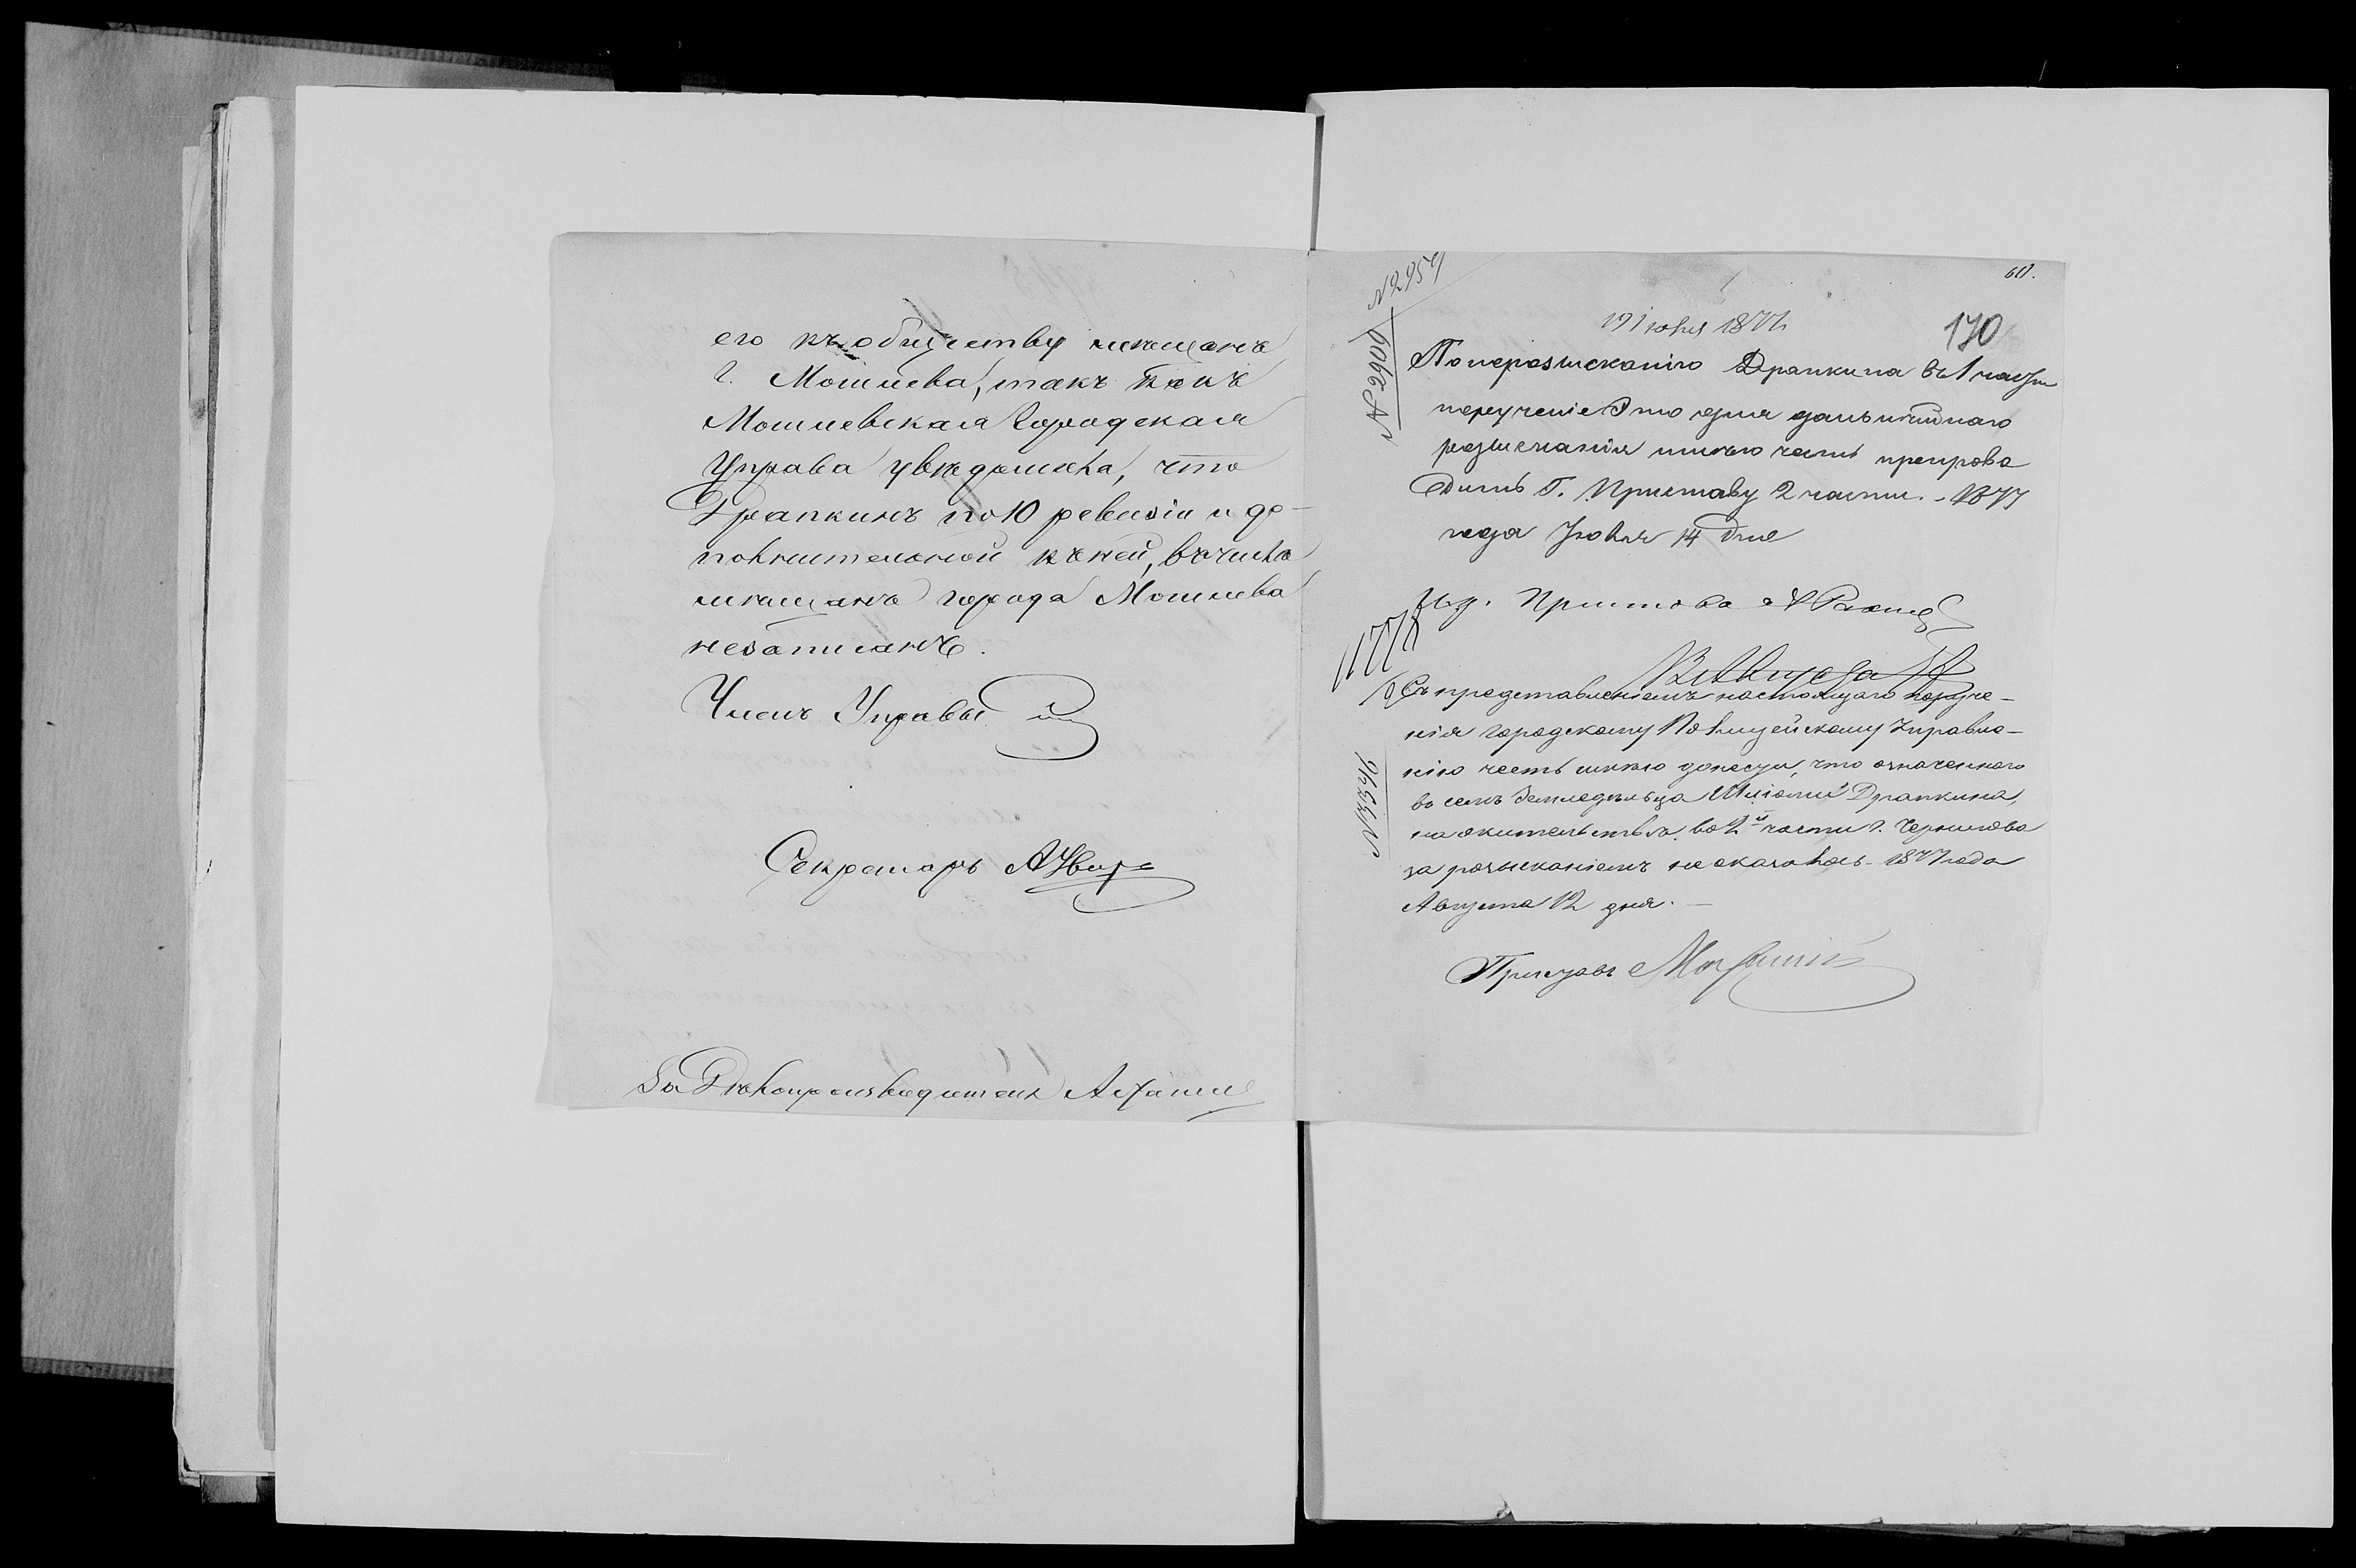 его къ обществу мѣщанъ
г. Могилева, такъ какъ
Могилевская Городская
Управа увѣдомила, что
Драпкинъ по 10 ревизіи и до-
полнительной къ ней, въ числѣ
мѣщанъ города Могилева
незаписанъ.
Членъ Управы
Секретарь
За Дѣлопроизводителя
№ 2957
№ 2909
19 Іюня 1877
170
По неразысканію Драпкина въ 1 части
порученіе это для дальнѣйшаго
разысканія имѣю честь препрово
дить Г. Приставу 2 части. - 1877
года Іюня 14 дня
И. д. Пристава
Съ представленіемъ настоящаго поруче-
нія городскому Полицейскому Управле-
нію честь имѣю донести, что означеннаго
въ семъ земледѣльца Драпкина,
на жительствѣ во 2й части г. Чернигова
за розысканіемъ не оказалось - 1877 года
Августа 12 дня. -
Приставъ